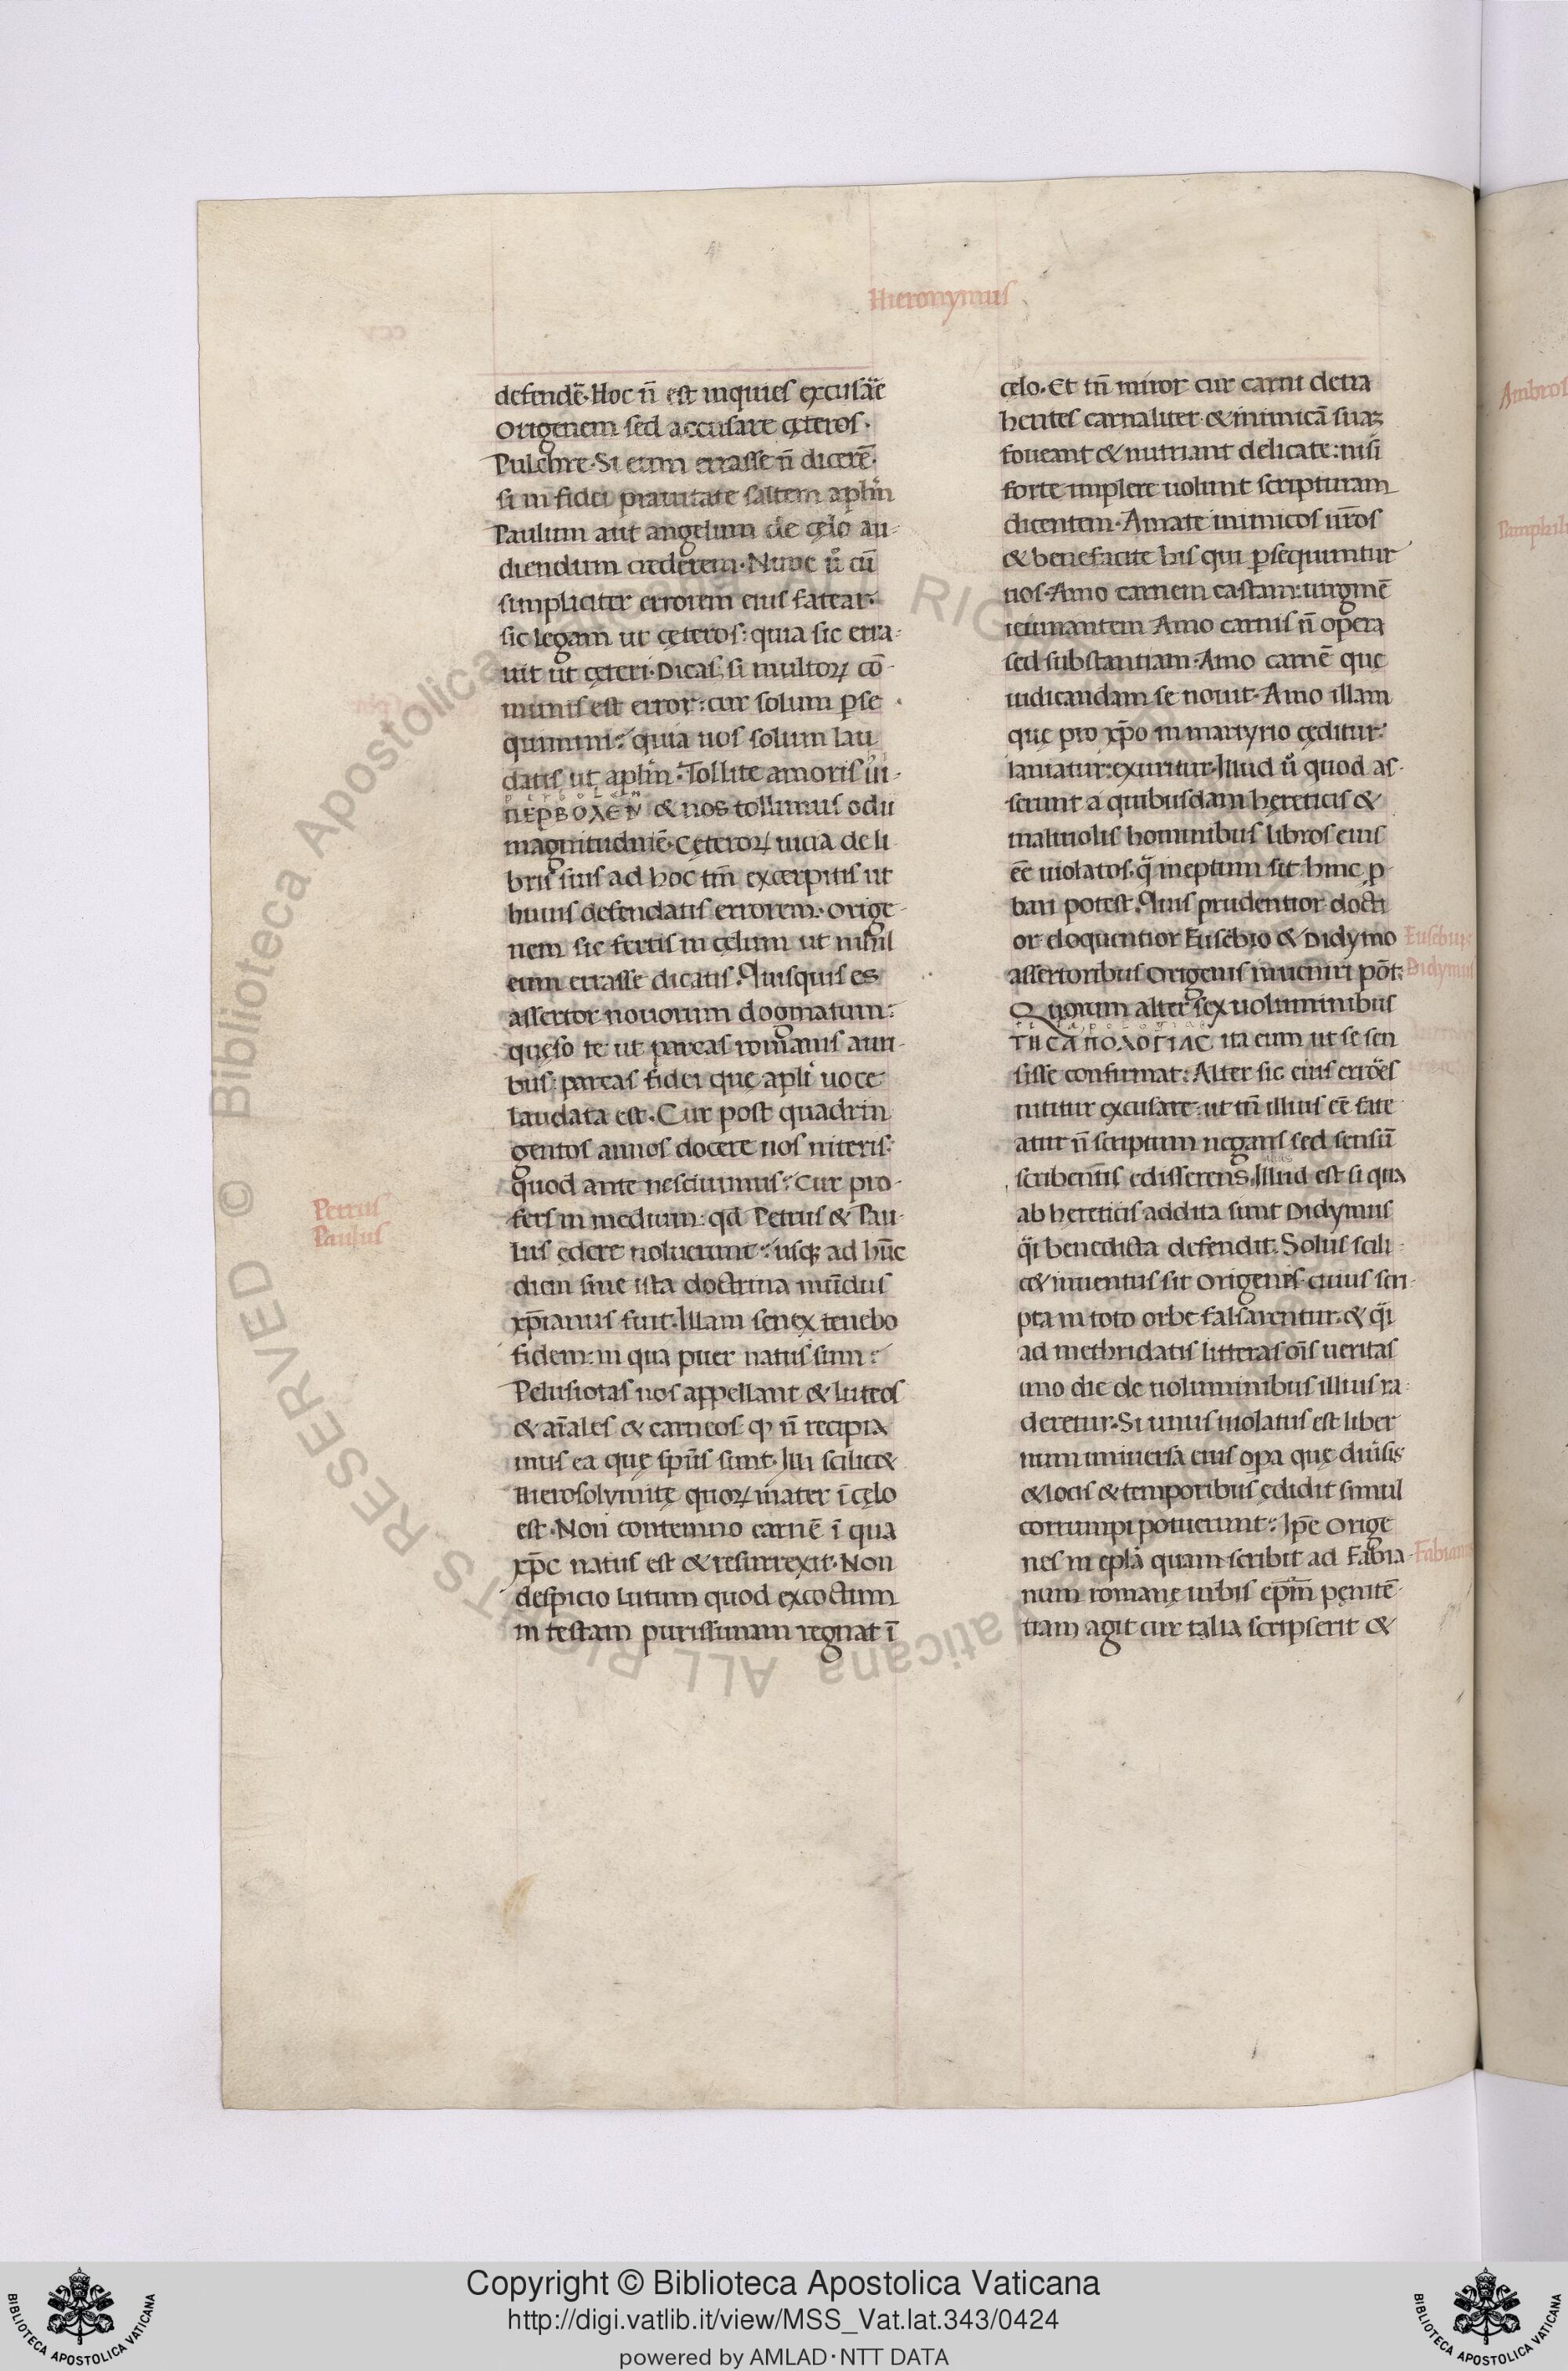 Hieronymus
defendē. Hoc n̄ est inquies excusar̄e
Origenem sed accusare cęteros.
Pulchre. Si eum errasse n̄ dicerē.
si in fidei prauitate saltem aplm̄
Paulum aut angelum de cęlo au-
diendum crederem. Nunc ů cū
simpliciter errorem eius fatear.
sic legam ut cęteros: quia sic erra-
uit ut cęteri. Dicas, si multoꝝ cō-
munis est error: cur solum ꝑse
quimini: quia uos solum lau
datis ut aplm̄. Tollite amoris ὑ-
ΠΕΡΒΟΛΕΝ & nos tollimus odii
magnitudinē. Cęteroꝝ uicia de li
bris suis ad hoc tm̄ excerpitis ut
huius defendatis errorem. Orige-
nem sic fertis in cęlum ut nihil
eum errasse dicatis. Quisquis es
assertor nouorum dogmatum:
quęso te ut parcas romanis auri-
bus: parcas fidei que apli uoce
laudata est. Cur post quadrin
gentos annos docere nos niteris:
quod ante nesciuimus: Cur pro-
fers in medium: qd̄ Petrus & Pau-
lus ędere noluerunt: usq; ad hūc
diem sine ista doctrina mūdus
xp̄ianus fuit. Illam senex tenebo
fidem: in qua puer natus sum:
Pelusiotas nos appellant & luteos
& aīales & carneos ꝙ n̄ recipia
mus ea quę sp̄us sunt. Illi scilic&
Hierosolymitę quoꝝ mater ī cęlo
est. Non contemno carnē ī qua
xp̄c natus est & resurrexit. Non
despicio lutum quod excoctum
in testam purissimam regnat ī
Petrus
Paulus
cęlo. Et tn̄ miror cur carni detra
hentes carnaliter & inimicā suaꝫ
foueant & nutriant delicate: nisi
forte implere uolunt scripturam
dicentem. Amate inimicos ur̄os
& benefacite his qui ꝑsequuntur
uos. Amo carnem castam: uirginē
ieiunantem Amo carnis n̄ opera
sed substantiam. Amo carnē quę
iudicandam se nouit. Amo illam
quę pro xp̄o in martyrio cęditur:
laniatur: exuritur. Illud ů quod as-
serunt a quibusdam hęreticis &
maliuolis hominibus libros eius
eē uiolatos. q̄ ineptum sit hinc ꝓ-
bari potest. Quis prudentior docti
or eloquentior Eusebio & Didymo
assertoribus Origenis inueniri pōt:
Quorum alter sex uoluminibus
ΤΗС ΑΠΟΛΟΓΙΑС ita eum ut se sen
sisse confirmat: Alter sic eius erroēs
nititur excusare: ut tn̄ illius eē fate
atur n̄ scriptum negans sed sensū
scribentis edisserens. Illud est si qua
ab hereticis addita sunt Didymus
q̄i benedicta defendit. Solus scili-
c& inuentus sit Origenes cuius scri-
pta in toto orbe falsarentur. & q̄i
ad methridatis litteras oīs ueritas
uno die de uoluminibus illius ra-
deretur. Si unus uiolatus est liber
num uniuersa eius opa quę diu̇sis
& locis & temporibus ędidit simul
corrumpi potuerunt: Ip̄e Orige
nes in epla quam scribit ad Fabia-
num romanę urbis ep̄m penitē-
tiam agit cur talia scripserit &
Eusebius
Didymus
Fabianus
Copyright © Biblioteca Apostolica Vaticana
http://digi.vatlib.it/view/MSS_Vat.lat.343/0424
powered by AMLAD·NTT DATA
BIBLIOTECA APOSTOLICA VATICANA
BIBLIOTECA APOSTOLICA VATICANA